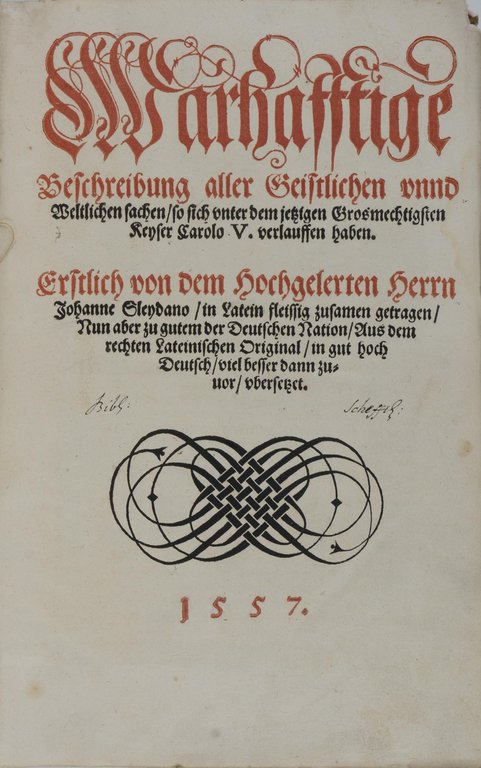 Warhafftige
Beschreibung aller Geistlichen vnnd
Weltlichen sachen/so sich vnter dem jetzigen Grosmechtigsten
Keyser Carolo V. verlauffen haben.
Erstlich von dem Hochgelerten Herrn
Johanne Sleydano/in Latein fleissig zusamen getragen/
Nun aber zu gutem der Deutschen Nation/Aus dem
rechten Lateinischen Original/in gut hoch
Deutsch/viel besser dann zu-
uor/vbersetzet.
Bibl: Scheffel:
1557.